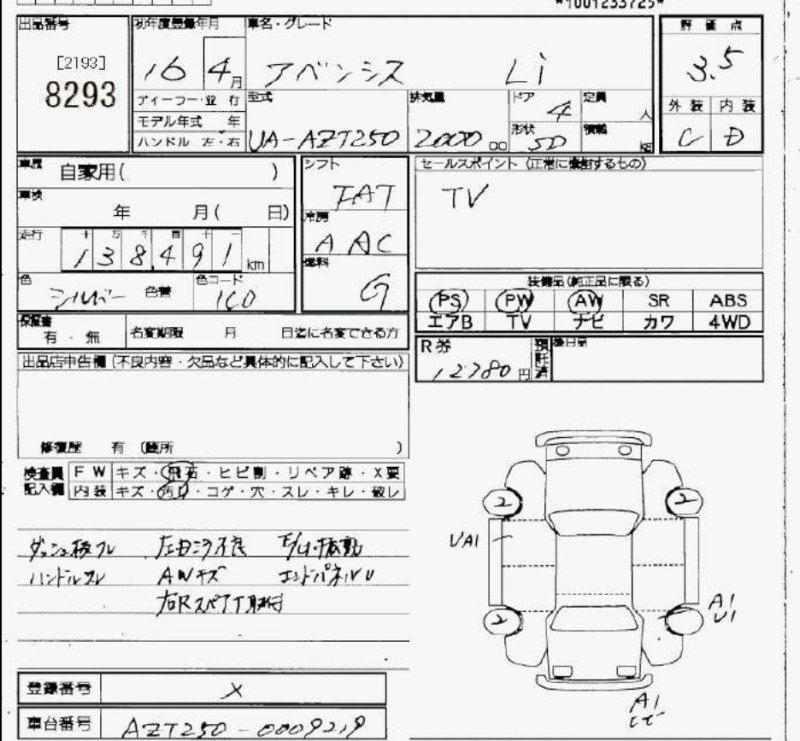 *1001233725*
出品番号
[2193]
8293
初年度登録年月
16 4月
車名・グレード
アベンシス Li
評価点
3.5
外装 内装
C D
ディーラー・並行
モデル年式 年
ハンドル 左・右
型式
UA-AZT250
排気量
2000 cc
ドア
4
形状
SD
定員
人
積載
kg
車歴
自家用( )
車検
年 月( 日)
走行
十 万 千 百 十 一
138,491 km
色
シルバー 色替
色コード
1C0
シフト
FAT
冷房
AAC
燃料
G
セールスポイント (正常に機能するもの)
TV
装備品(純正品に限る)
PS PW AW SR ABS
エアB TV ナビ カワ 4WD
保証書
有・無
名変期限 月 日迄に名変できる方
R券
12780円
預託済
後日品
出品店申告欄 (不良内容・欠品など具体的に記入して下さい)
修復歴 有 (箇所 )
検査員記入欄
FW キズ・飛石・ヒビ割・リペア跡・X要
内装 キズ・汚れ・コゲ・穴・スレ・キレ・破レ
ハンドルスレ AWキズ エンドパネルU
右RスペアT取付
2 2
UA1
2
A1
U1
A1
登録番号 X
車台番号 AZT250-0009219